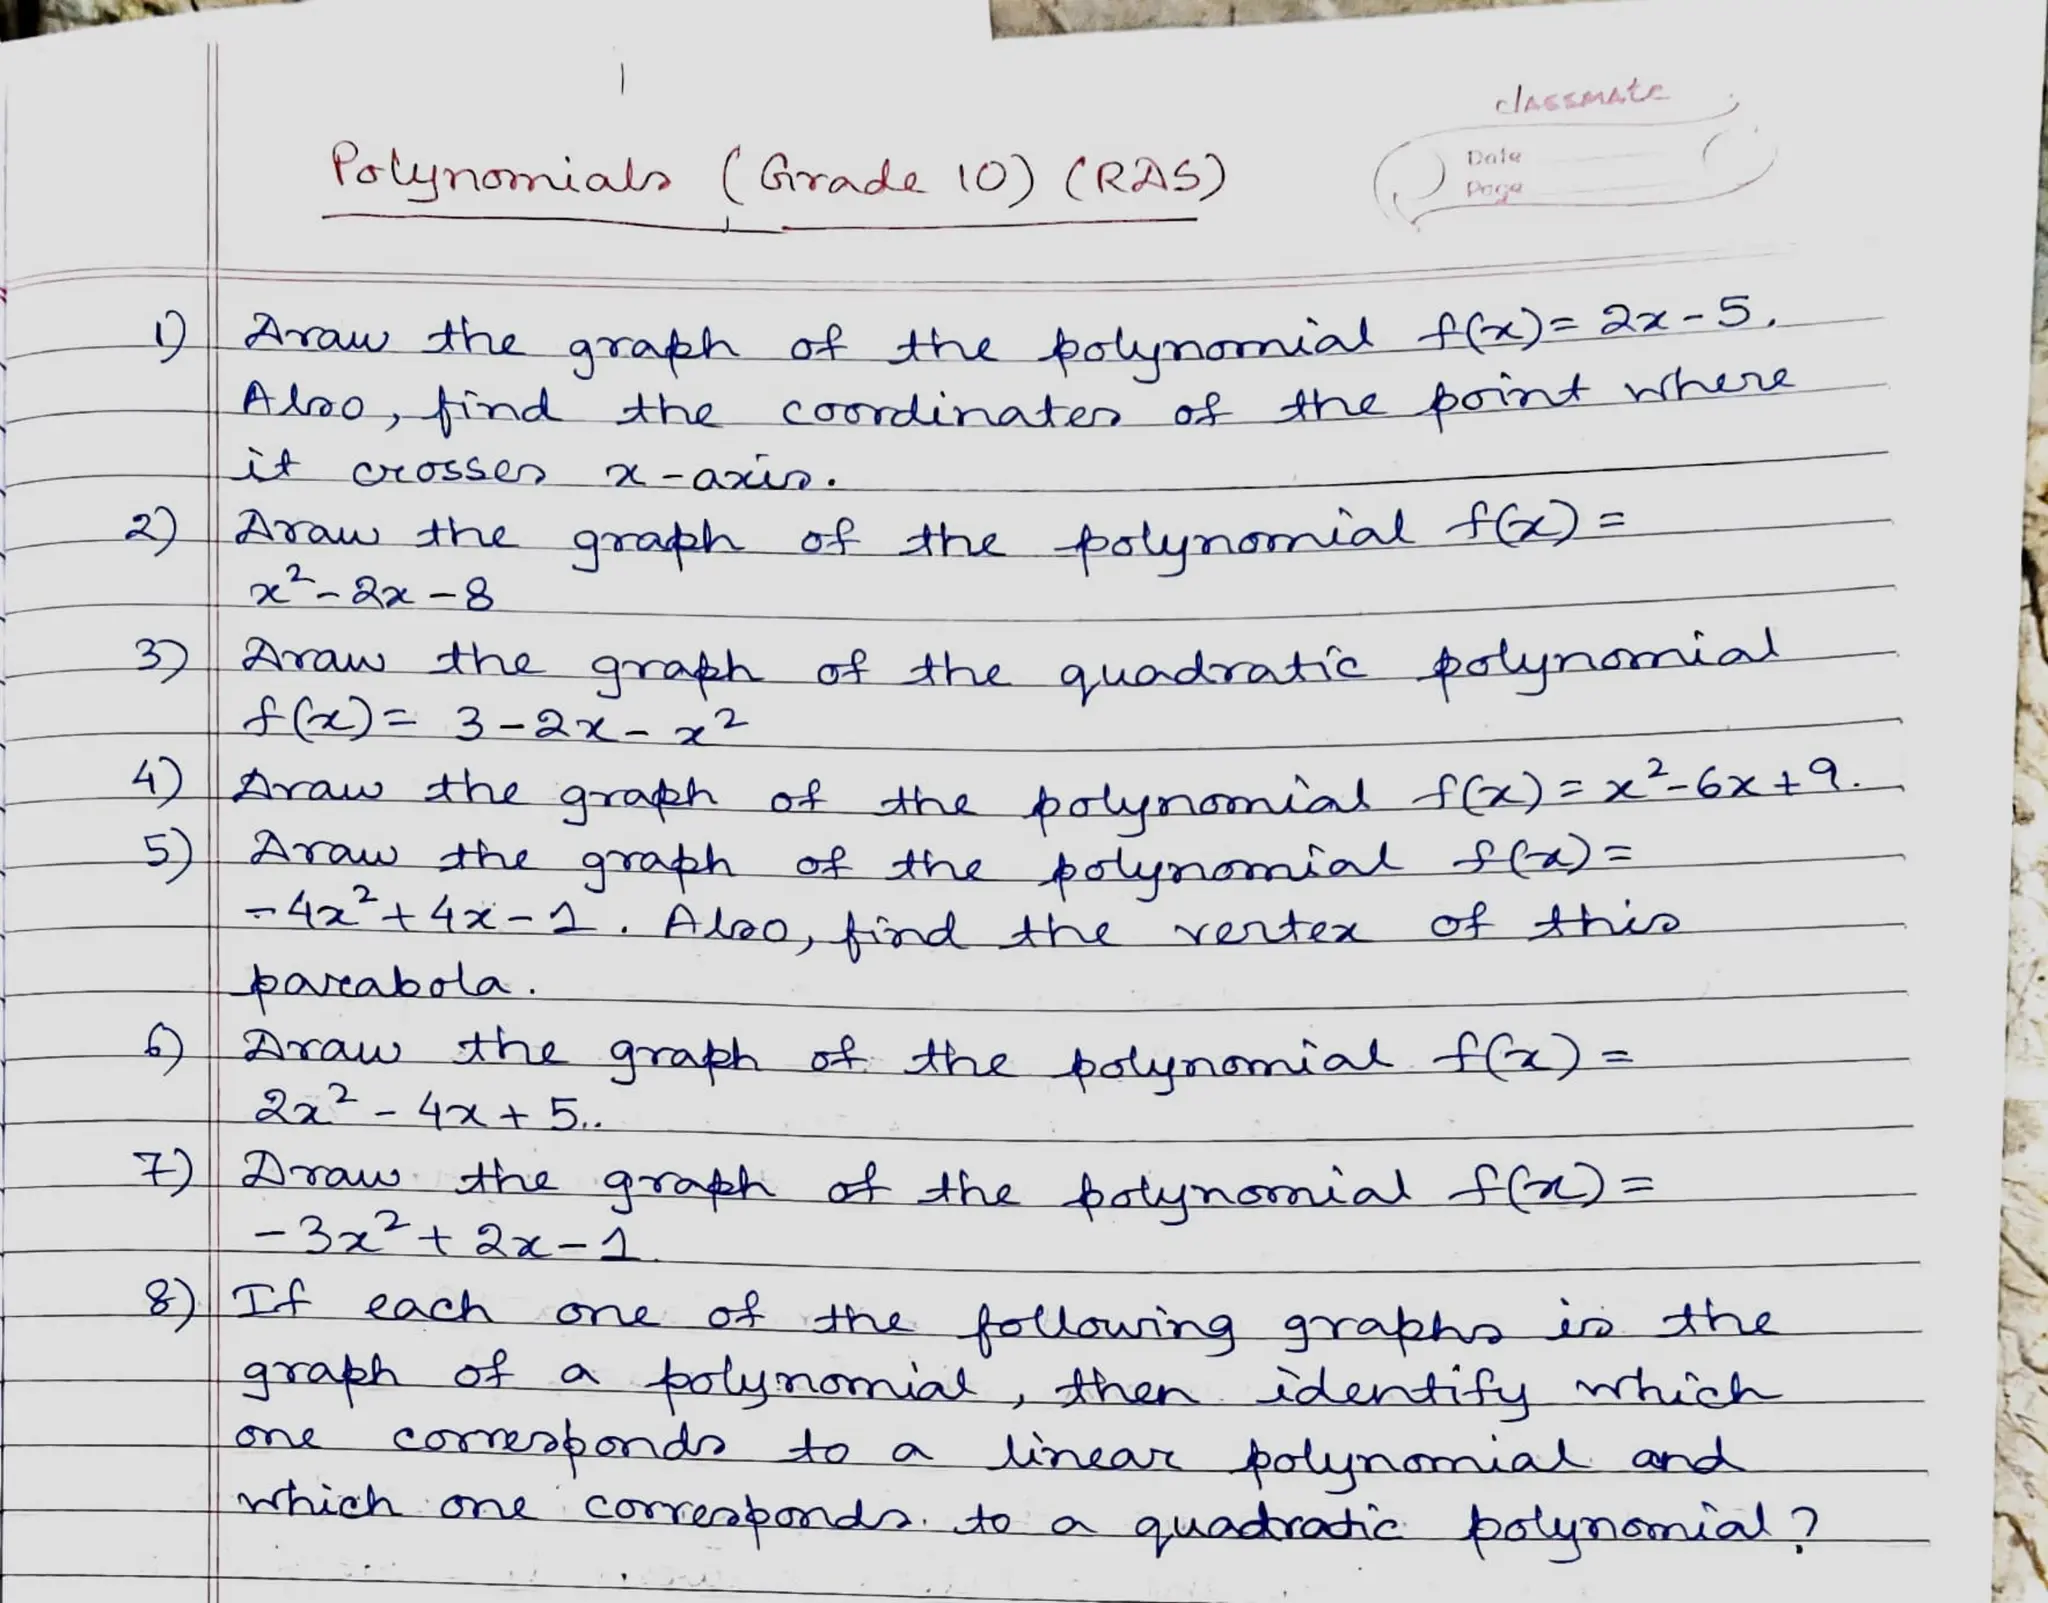 classmate
Date
Page
Polynomials (Grade 10) (RDS)
1) Draw the graph of the polynomial f(x) = 2x - 5.
Also, find the coordinates of the point where
it crosses x-axis.
2) Draw the graph of the polynomial f(x) =
x² - 2x - 8
3) Draw the graph of the quadratic polynomial
f(x) = 3 - 2x - x²
4) Draw the graph of the polynomial f(x) = x² - 6x + 9.
5) Draw the graph of the polynomial f(x) =
-4x² + 4x - 1. Also, find the vertex of this
parabola.
6) Draw the graph of the polynomial f(x) =
2x² - 4x + 5..
7) Draw the graph of the polynomial f(x) =
-3x² + 2x - 1.
8) If each one of the following graphs is the
graph of a polynomial, then identify which
one corresponds to a linear polynomial and
which one corresponds to a quadratic polynomial?